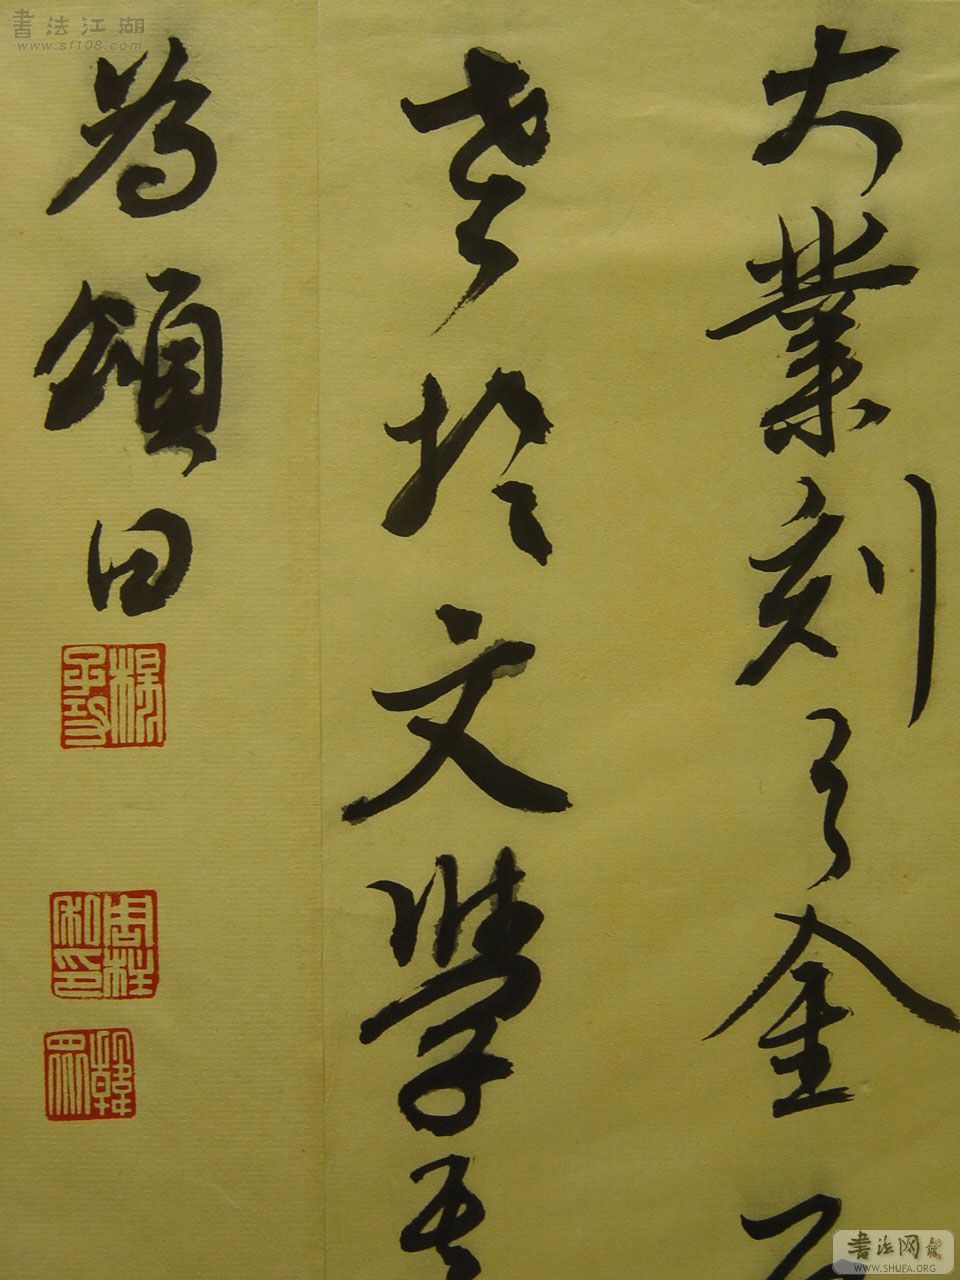 大業刻之金石
老於文學其
為頌曰
書法江湖
www.sf108.com
書法网
WWW.SHUFA.ORG